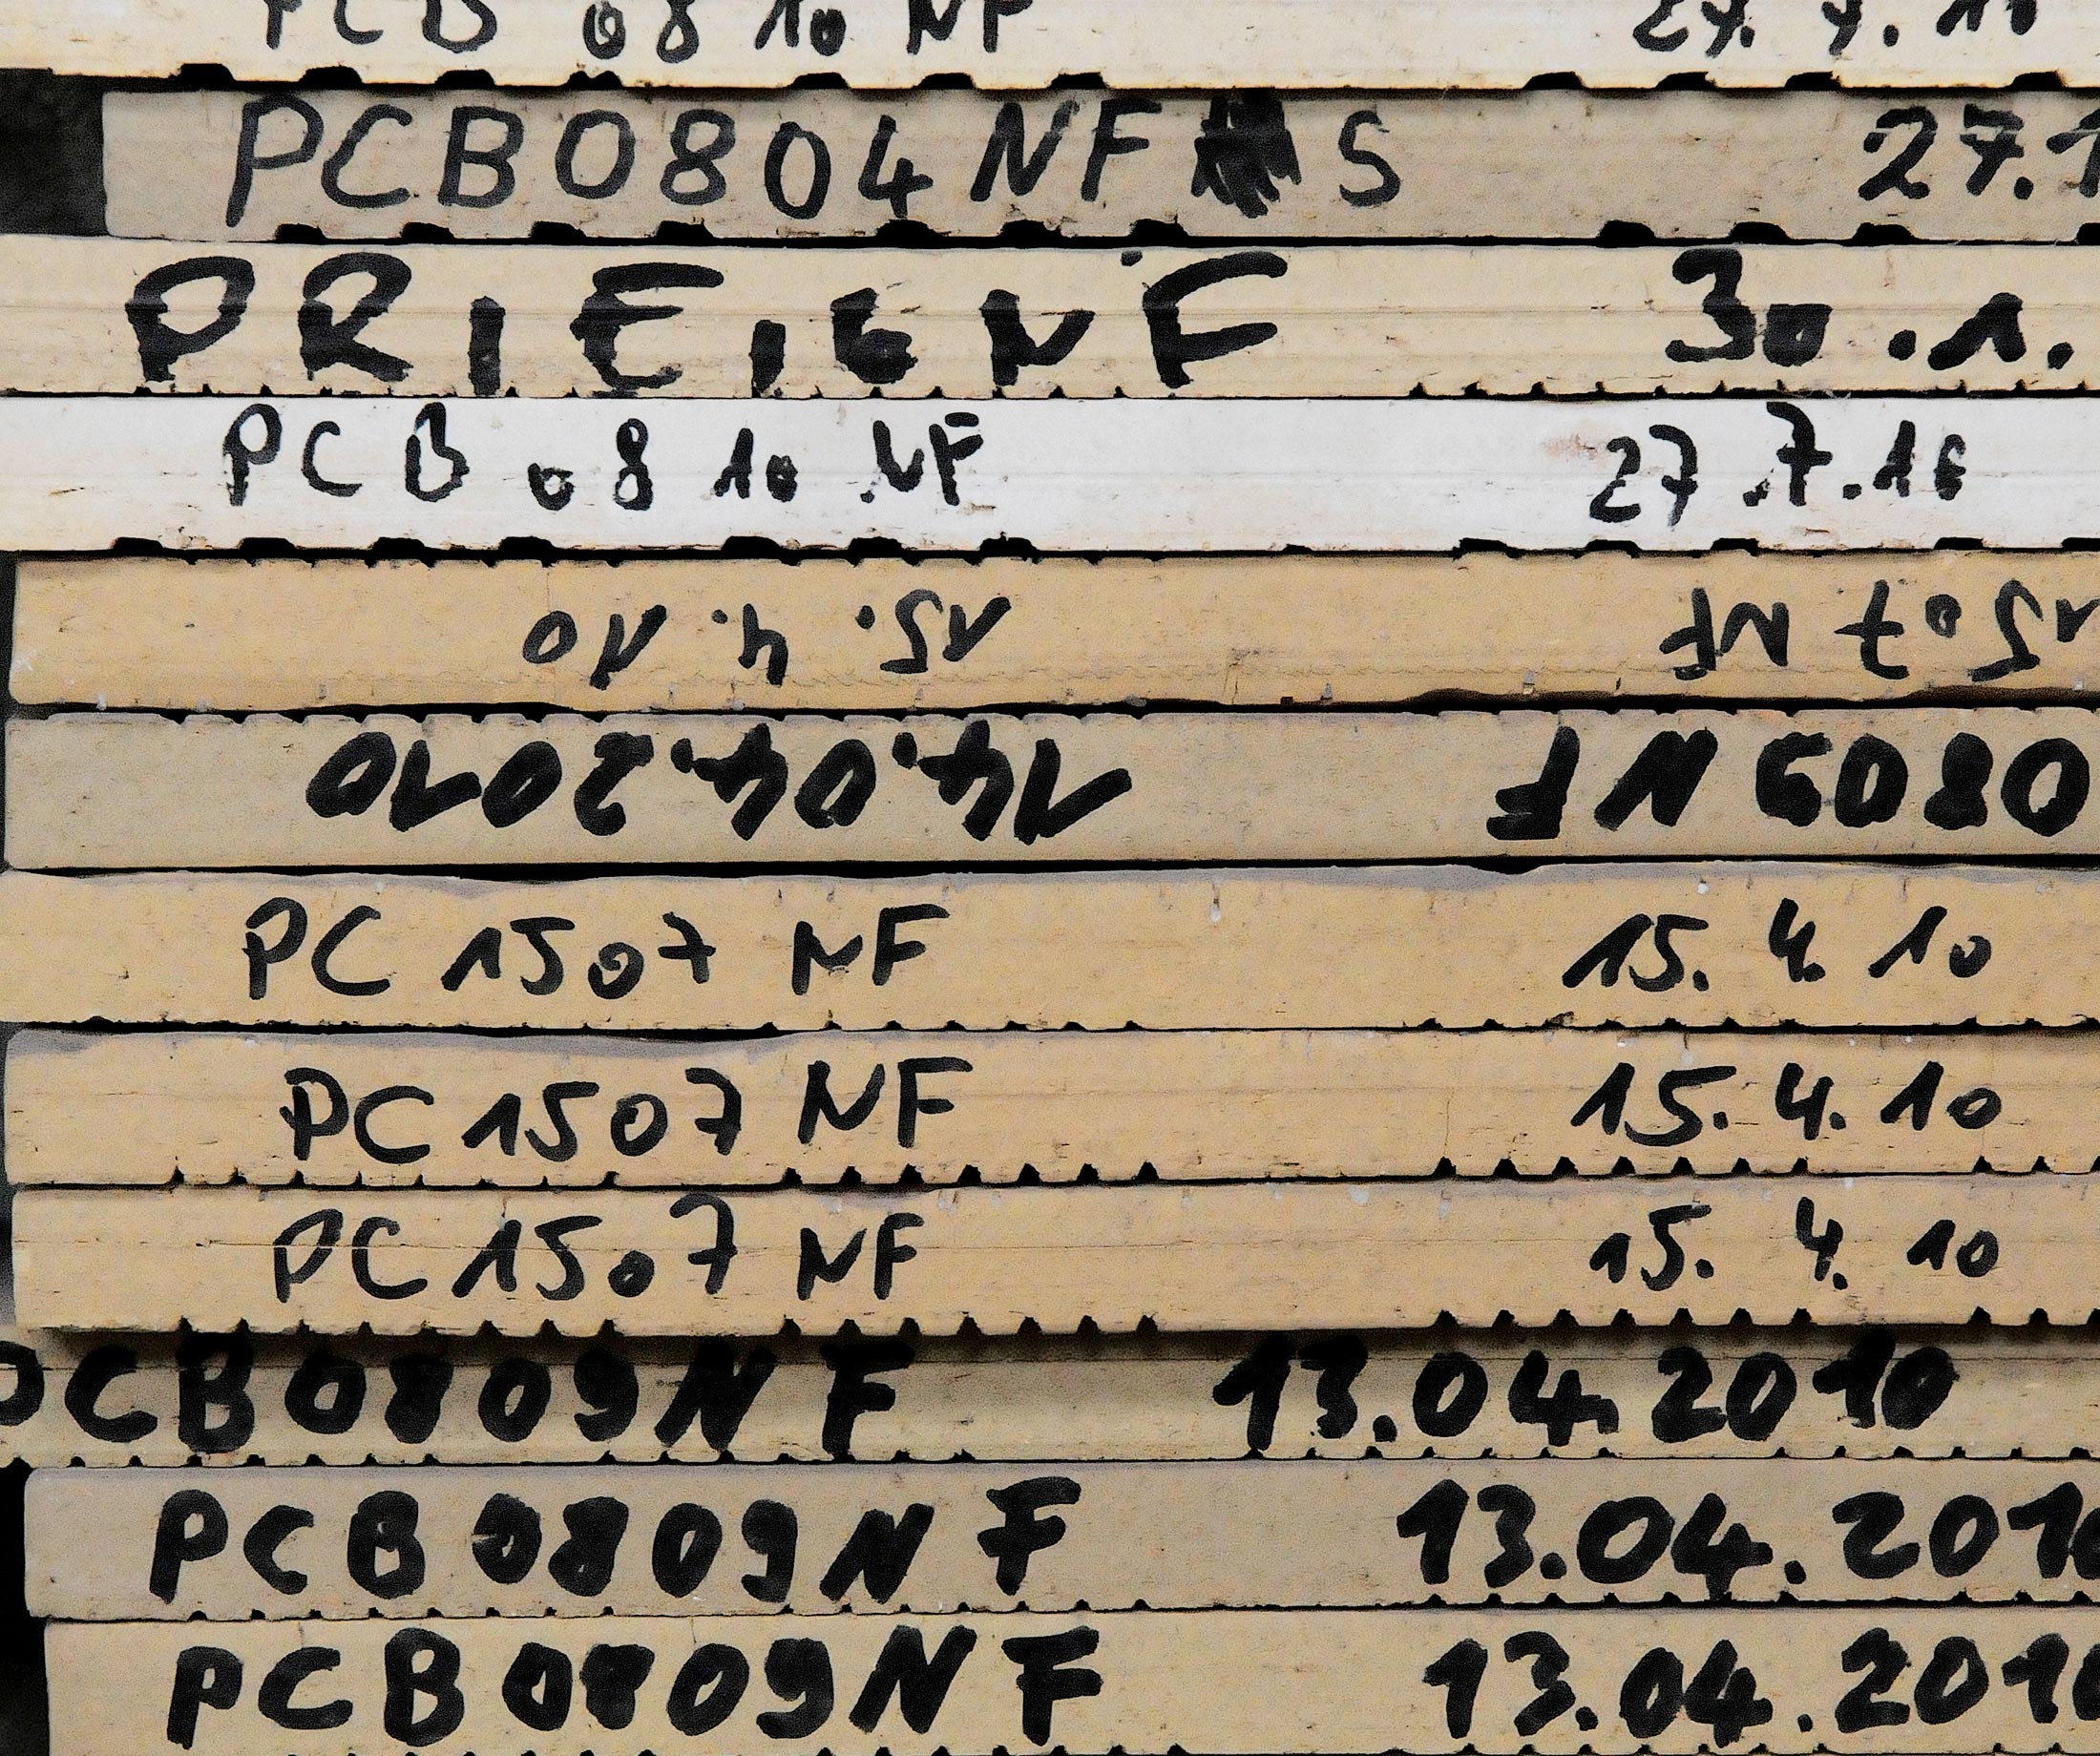 PCB 0810 NF 27.7.16
PCB0804NF S 27.1
PR1E16NF 30.1.
PCB 0810 NF 27.7.16
1507 NF 15.4.10
0809 NF 14.04.2010
PC 1507 NF 15. 4. 10
PC 1507 NF 15.4.10
PC 1507 NF 15. 4. 10
PCB0809NF 13.04.2010
PCB0809NF 13.04.2010
PCB0809NF 13.04.2010